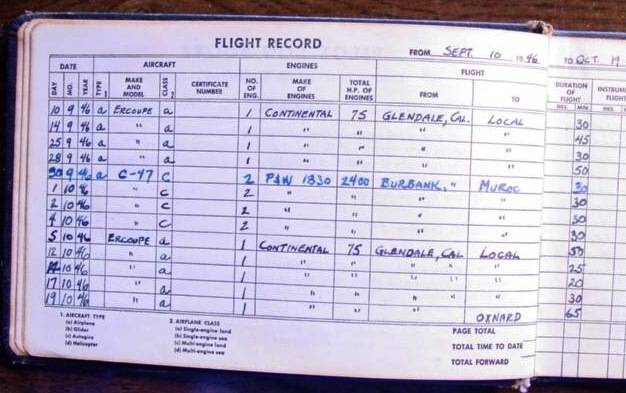 FLIGHT RECORD
FROM SEPT. 10 1946 TO OCT. 19
DATE AIRCRAFT ENGINES FLIGHT DURATION OF FLIGHT
DAY MO. YEAR TYPE MAKE AND MODEL CLASS CERTIFICATE NUMBER NO. OF ENG. MAKE OF ENGINES TOTAL H.P. OF ENGINES FROM TO HRS. MIN.
10 9 46 a ERCOUPE a 1 CONTINENTAL 75 GLENDALE, CAL. LOCAL 30
14 9 46 a " a 1 " " " " 45
25 9 46 a " a 1 " " " " 30
28 9 46 a " a 1 " " " " 50
30 9 46 a C-47 C 2 P&W 1830 2400 BURBANK, " MUROC 30
1 10 46 " C 2 " " " " 30
2 10 46 " C 2 " " " " 30
4 10 46 " C 2 " " " " 30
5 10 46 ERCOUPE a 1 CONTINENTAL 75 GLENDALE, CAL LOCAL 50
12 10 46 " a 1 " " " " " 25
10 46 " a 1 " " " " " 20
17 10 46 " a 1 " " " " 30
19 10 46 " a 1 " " " OXNARD 65
1. AIRCRAFT TYPE
(a) Airplane
(b) Glider
(c) Autogiro
(d) Helicopter
2. AIRPLANE CLASS
(a) Single-engine land
(b) Single-engine sea
(c) Multi-engine land
(d) Multi-engine sea
PAGE TOTAL
TOTAL TIME TO DATE
TOTAL FORWARD